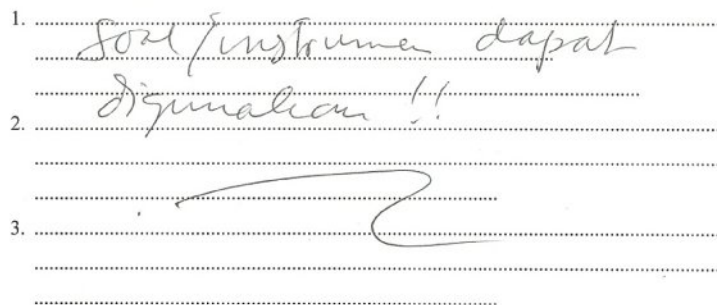 1.
Soal/instrumen dapat
digunakan !!
2.
3.